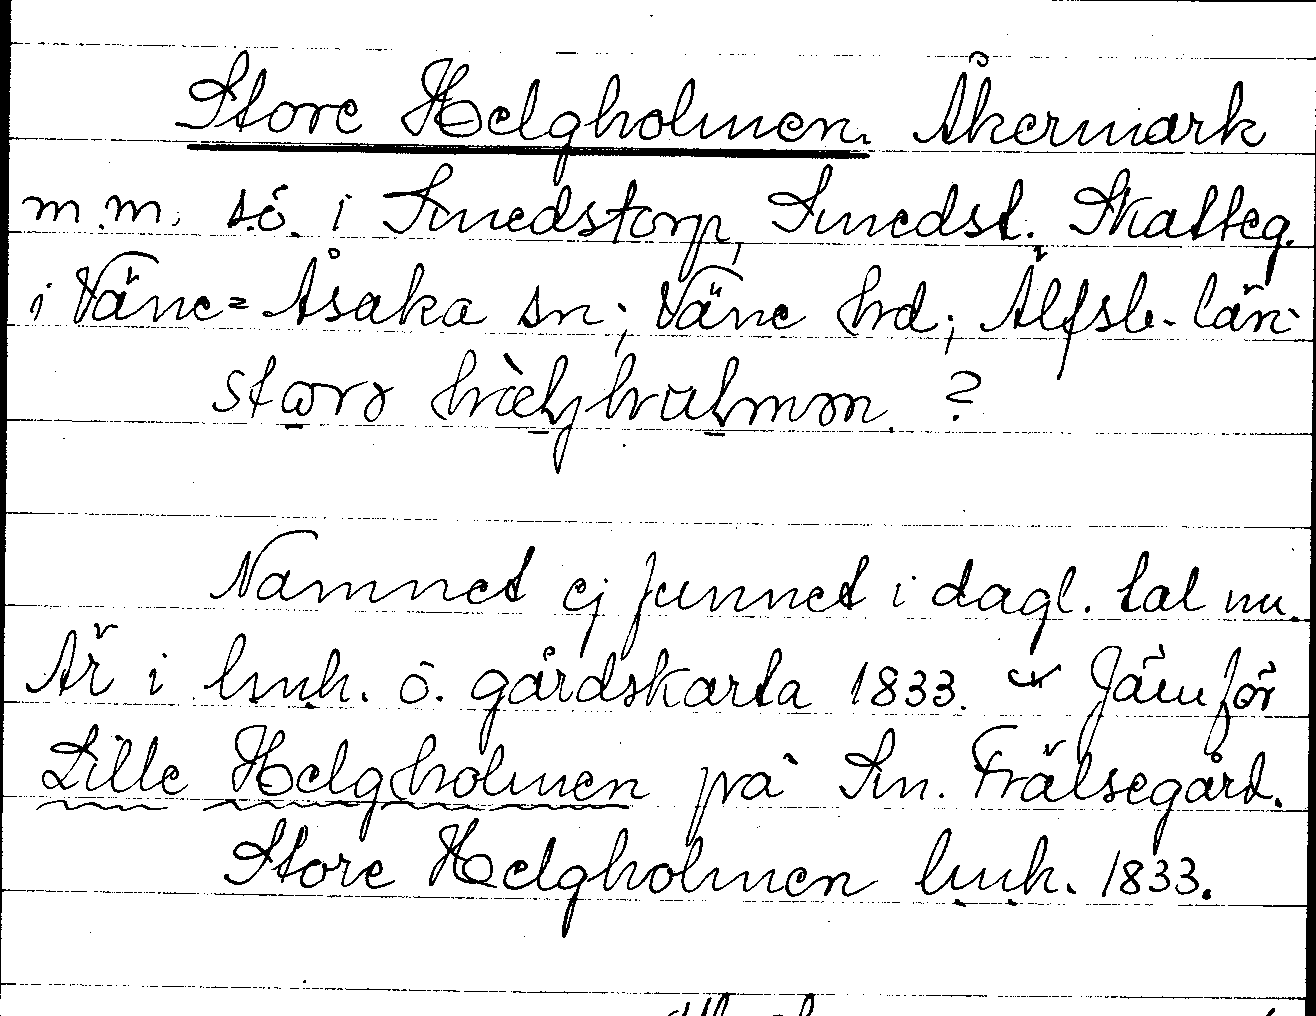 Store Helgholmen. Åkermark
m.m. s.ö. i Smedstorp, Smedst. Skatteg.
i Väne=Åsaka sn; Väne hrd; Älfsb. län.
Namnet ej funnet i dagl. tal nu.
Är i lmh. ö. gårdskarta 1833. Jämför
Lille Helgholmen på Sm. Frälsegård.
Store Helgholmen lmh. 1833.